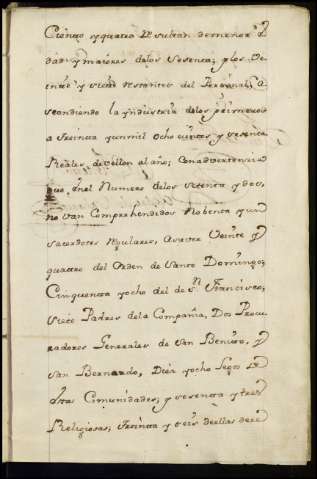 Ciento y quatro Rs vultan de menor e
dad y maiores de los sesenta; y los ve
inte y siete restantes del Personal; as
cendiendo la yndustria de los primeros
a treinta y un mil ochocientos y sesenta
Reales de vellon al año; con advertencia
que, en el Numero de los setenta y dos,
no van Comprehendidos Nobenta y un
sacerdotes Regulares, a saver Veinte y
quatro del Orden de Santo Domingo;
Cinquenta y ocho del de Sn Francisco,
siete Padres de la Compañia, Dos Procu
radores Generales de San Benito, y
San Bernardo, Diez y ocho Legos de
dhas Comunidades; y sesenta y tres
Religiosas, treinta y seis de ellas de el